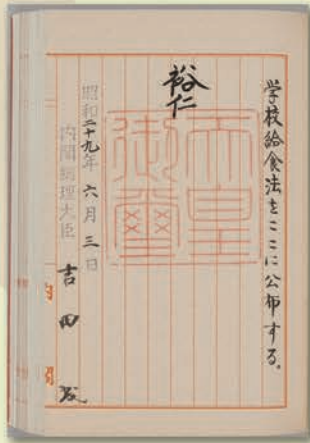 学校給食法をここに公布する。
裕仁
天皇御璽
昭和二十九年六月三日
内閣総理大臣 吉田茂
内閣